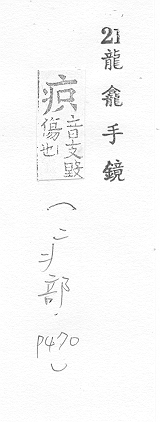 21龍龕手鏡
疻音支毀傷也
(二疒部.P470)